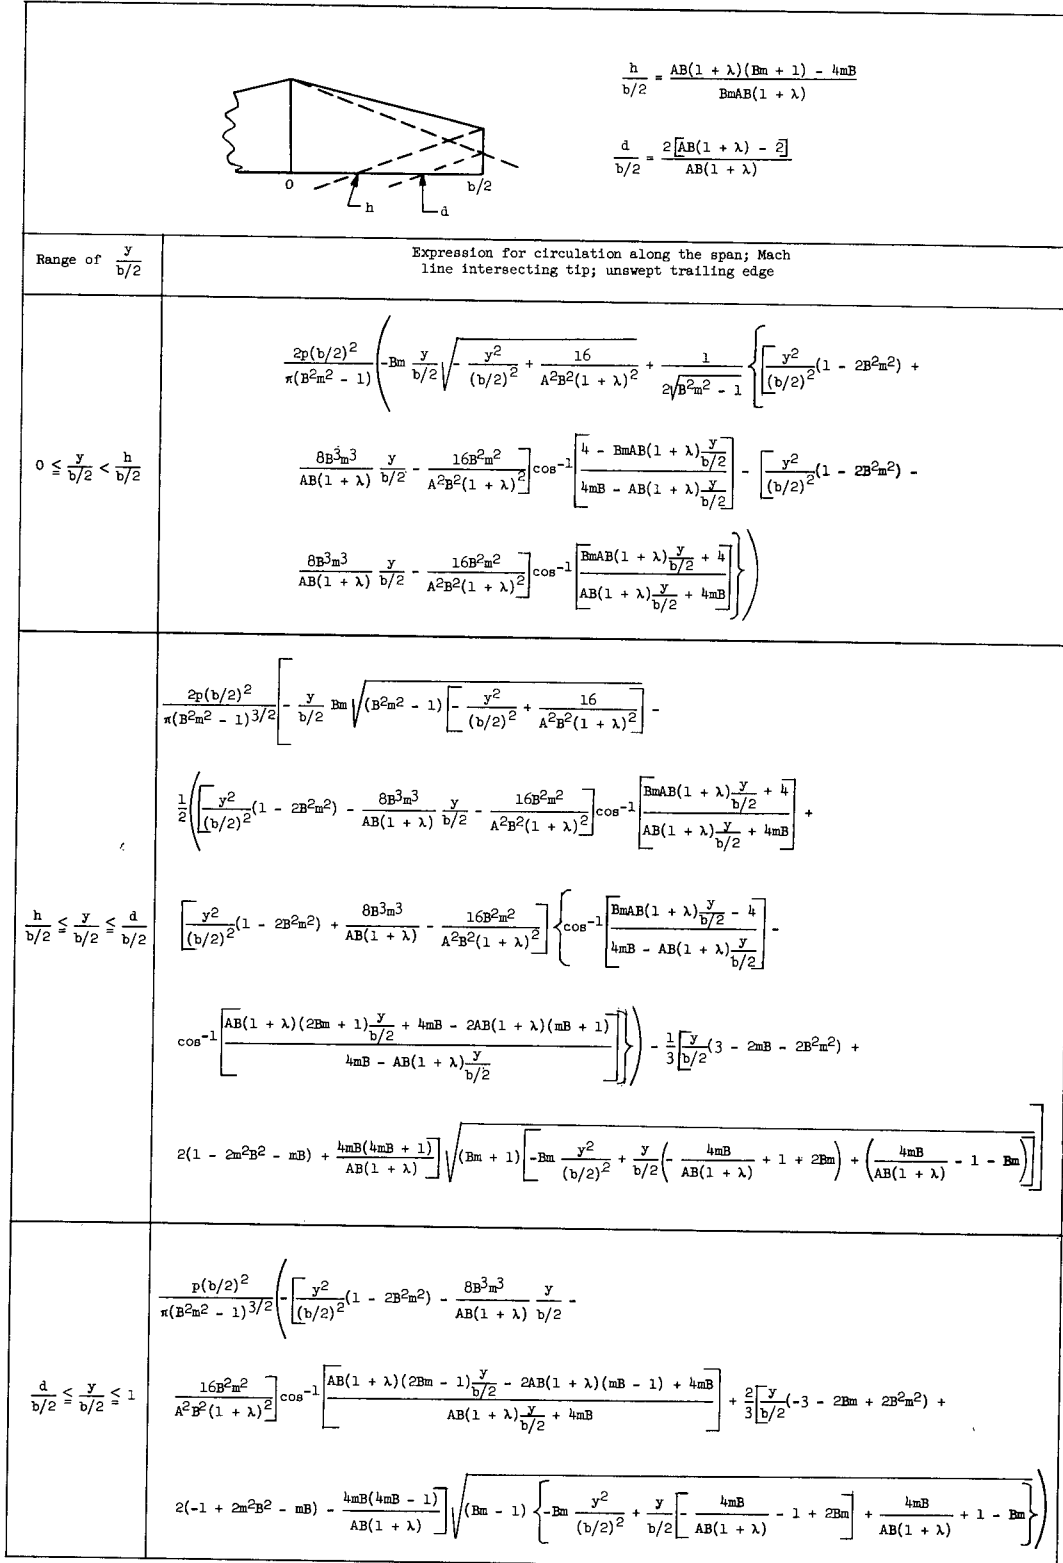 h/(b/2) = (AB(1 + λ)(Bm + 1) - 4mB)/(BmAB(1 + λ))
d/(b/2) = 2[AB(1 + λ) - 2]/(AB(1 + λ))
0
b/2
h
d
Range of y/(b/2)
Expression for circulation along the span; Mach
line intersecting tip; unswept trailing edge
0 ≦ y/(b/2) < h/(b/2)
2p(b/2)²/(π(B²m² - 1)) (-Bm y/(b/2) √(-y²/(b/2)² + 16/(A²B²(1 + λ)²)) + 1/(2√(B²m² - 1)) {[y²/(b/2)² (1 - 2B²m²) +
8B³m³/(AB(1 + λ)) y/(b/2) - 16B²m²/(A²B²(1 + λ)²)] cos⁻¹[(4 - BmAB(1 + λ) y/(b/2))/(4mB - AB(1 + λ) y/(b/2))] - [y²/(b/2)² (1 - 2B²m²) -
8B³m³/(AB(1 + λ)) y/(b/2) - 16B²m²/(A²B²(1 + λ)²)] cos⁻¹[(BmAB(1 + λ) y/(b/2) + 4)/(AB(1 + λ) y/(b/2) + 4mB)]})
h/(b/2) ≦ y/(b/2) ≦ d/(b/2)
2p(b/2)²/(π(B²m² - 1)^3/2) [- y/(b/2) Bm √((B²m² - 1)[-y²/(b/2)² + 16/(A²B²(1 + λ)²)]) -
1/2([y²/(b/2)² (1 - 2B²m²) - 8B³m³/(AB(1 + λ)) y/(b/2) - 16B²m²/(A²B²(1 + λ)²)] cos⁻¹[(BmAB(1 + λ) y/(b/2) + 4)/(AB(1 + λ) y/(b/2) + 4mB)] +
[y²/(b/2)² (1 - 2B²m²) + 8B³m³/(AB(1 + λ)) - 16B²m²/(A²B²(1 + λ)²)] {cos⁻¹[(BmAB(1 + λ) y/(b/2) - 4)/(4mB - AB(1 + λ) y/(b/2))] -
cos⁻¹[(AB(1 + λ)(2Bm + 1) y/(b/2) + 4mB - 2AB(1 + λ)(mB + 1))/(4mB - AB(1 + λ) y/(b/2))]}) - 1/3[y/(b/2) (3 - 2mB - 2B²m²) +
2(1 - 2m²B² - mB) + 4mB(4mB + 1)/(AB(1 + λ))] √((Bm + 1)[-Bm y²/(b/2)² + y/(b/2) (-4mB/(AB(1 + λ)) + 1 + 2Bm) + (4mB/(AB(1 + λ)) - 1 - Bm)])]
d/(b/2) ≦ y/(b/2) ≦ 1
p(b/2)²/(π(B²m² - 1)^3/2) (-[y²/(b/2)² (1 - 2B²m²) - 8B³m³/(AB(1 + λ)) y/(b/2) -
16B²m²/(A²B²(1 + λ)²)] cos⁻¹[(AB(1 + λ)(2Bm - 1) y/(b/2) - 2AB(1 + λ)(mB - 1) + 4mB)/(AB(1 + λ) y/(b/2) + 4mB)] + 2/3[y/(b/2) (-3 - 2Bm + 2B²m²) +
2(-1 + 2m²B² - mB) - 4mB(4mB - 1)/(AB(1 + λ))] √((Bm - 1){-Bm y²/(b/2)² + y/(b/2) [-4mB/(AB(1 + λ)) - 1 + 2Bm] + 4mB/(AB(1 + λ)) + 1 - Bm}))